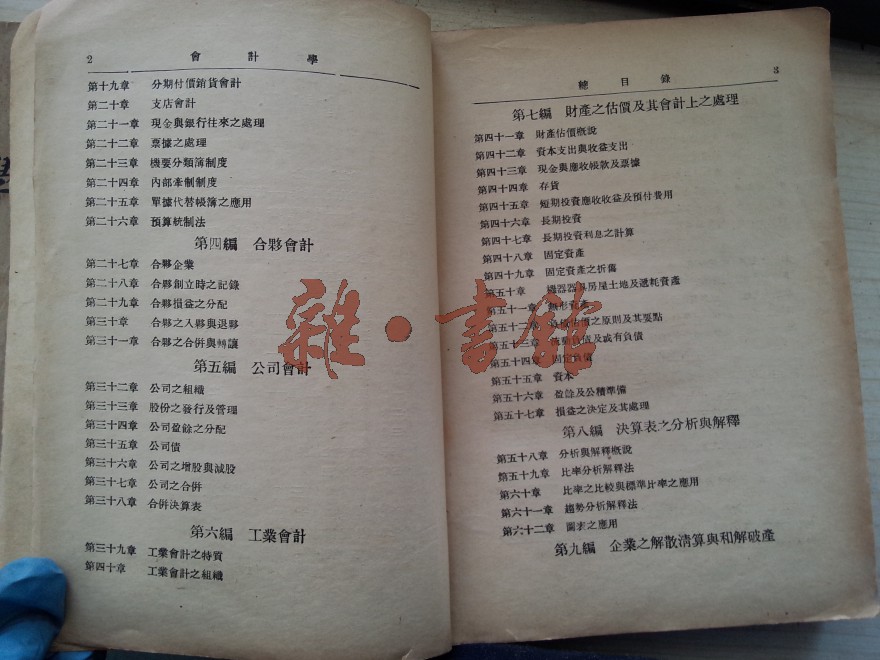 2 會計學
第十九章 分期付價銷貨會計
第二十章 支店會計
第二十一章 現金與銀行往來之處理
第二十二章 票據之處理
第二十三章 機要分類簿制度
第二十四章 內部牽制制度
第二十五章 單據代替帳簿之應用
第二十六章 預算統制法
第四編 合夥會計
第二十七章 合夥企業
第二十八章 合夥創立時之記錄
第二十九章 合夥損益之分配
第三十章 合夥之入夥與退夥
第三十一章 合夥之合併與轉讓
第五編 公司會計
第三十二章 公司之組織
第三十三章 股份之發行及管理
第三十四章 公司盈餘之分配
第三十五章 公司債
第三十六章 公司之增股與減股
第三十七章 公司之合併
第三十八章 合併決算表
第六編 工業會計
第三十九章 工業會計之特質
第四十章 工業會計之組織
總目錄 3
第七編 財產之估價及其會計上之處理
第四十一章 財產估價概說
第四十二章 資本支出與收益支出
第四十三章 現金與應收帳款及票據
第四十四章 存貨
第四十五章 短期投資應收收益及預付費用
第四十六章 長期投資
第四十七章 長期投資利息之計算
第四十八章 固定資產
第四十九章 固定資產之折舊
第五十章 機器器具房屋土地及遞耗資產
第五十一章 無形資產
第五十二章 負債估價之原則及其要點
第五十三章 流動負債及或有負債
第五十四章 固定負債
第五十五章 資本
第五十六章 盈餘及公積準備
第五十七章 損益之決定及其處理
第八編 決算表之分析與解釋
第五十八章 分析與解釋概說
第五十九章 比率分析解釋法
第六十章 比率之比較與標準比率之應用
第六十一章 趨勢分析解釋法
第六十二章 圖表之應用
第九編 企業之解散清算與和解破產
雜·書館